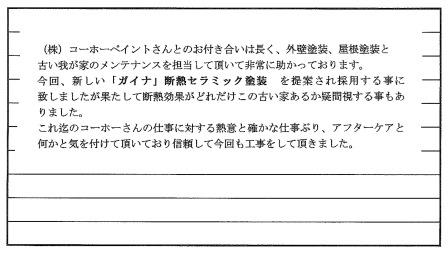 （株）コーホーペイントさんとのお付き合いは長く、外壁塗装、屋根塗装と
古い我が家のメンテナンスを担当して頂いて非常に助かっております。
今回、新しい「ガイナ」断熱セラミック塗装　を提案され採用する事に
致しましたが果たして断熱効果がどれだけこの古い家あるか疑問視する事もあ
りました。
これ迄のコーホーさんの仕事に対する熱意と確かな仕事ぶり、アフターケアと
何かと気を付けて頂いており信頼して今回も工事をして頂きました。